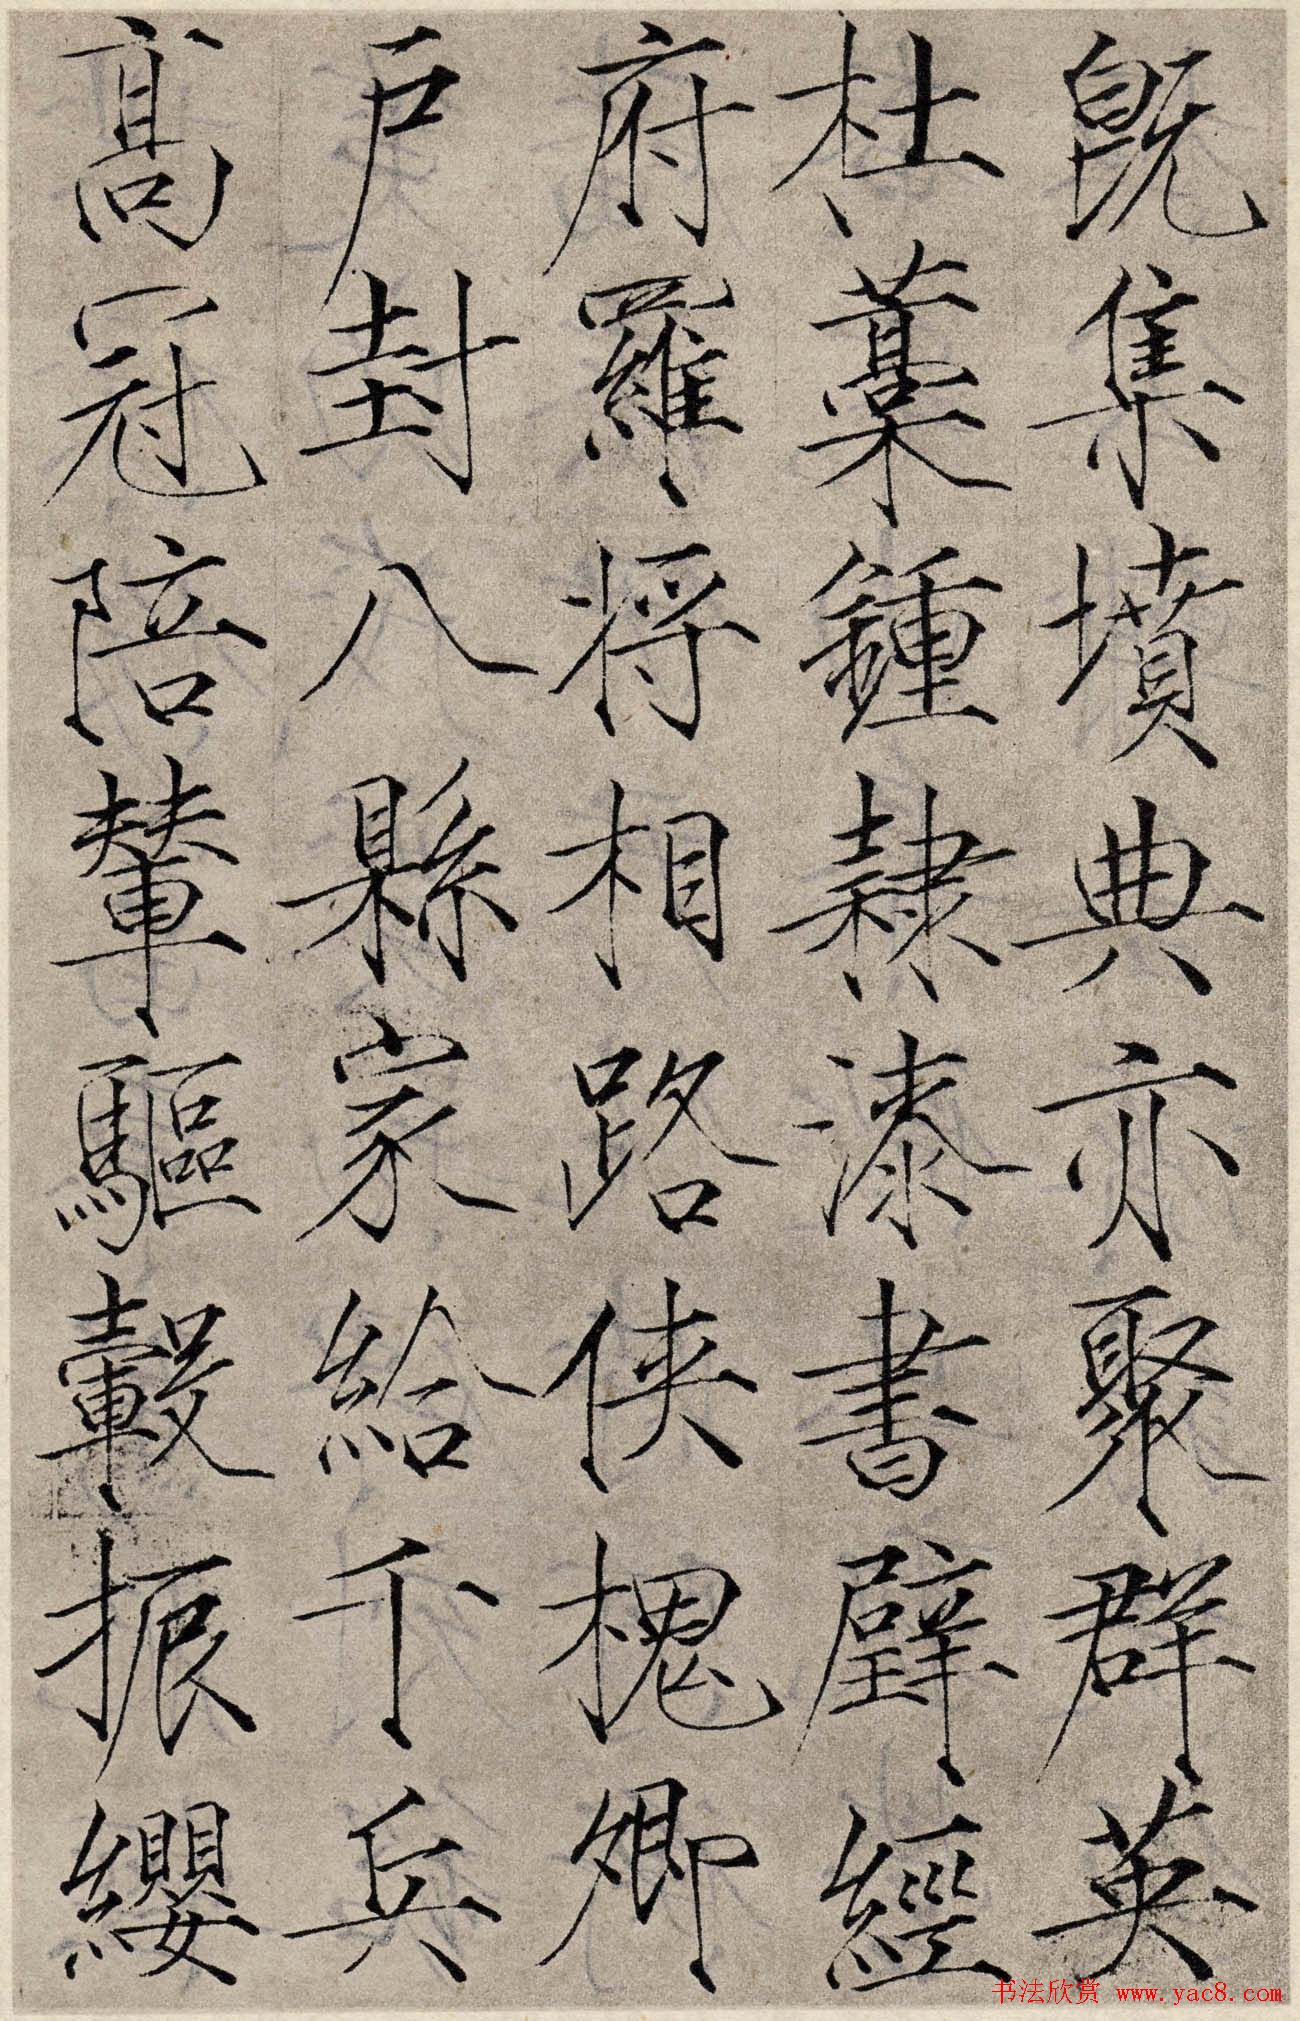 既集墳典亦聚群英
杜藁鍾隸漆書壁經
府羅將相路俠槐卿
戶封八縣家給千兵
高冠陪輦驅轂振纓
书法欣赏 www.yac8.com